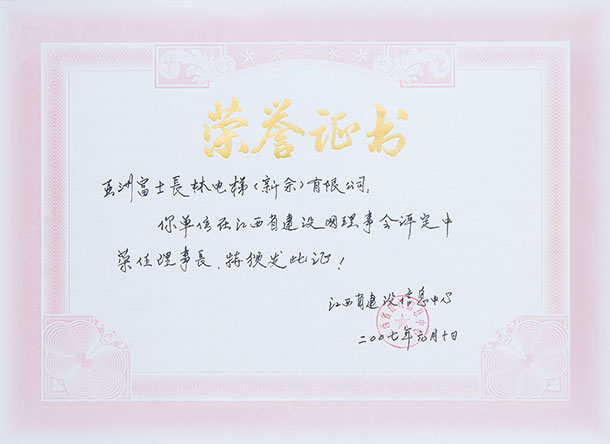 荣誉证书
亚洲富士長林电梯(新余)有限公司:
你单位在江西省建设网理事会评定中
荣任理事長,特颁发此证!
江西省建设信息中心
二00七年元月十日